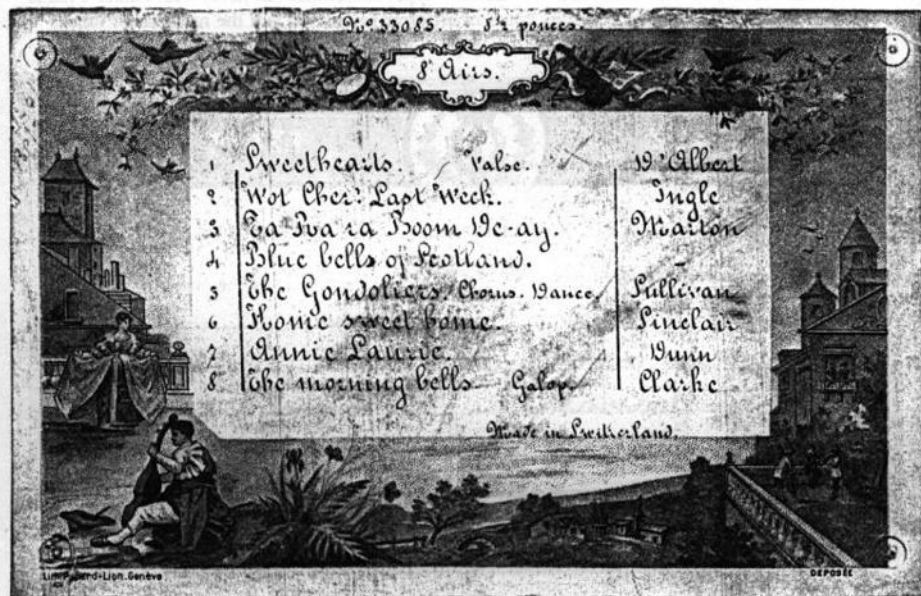 No. 33085. 8½ pouces.
8 Airs.
1 Sweethearts. Valse. D'Albert
2 Wot Cher: Last Week. Ingle
3 Ta Ra ra Boom De-ay. Marton
4 Blue bells of Scotland. -
5 The Gondoliers. Chorus. Dance. Sullivan
6 Home sweet home. Sinclair
7 Annie Laurie. Dunn
8 The morning bells Galop. Clarke
Made in Switzerland.
Lion. Genève
DÉPOSÉE